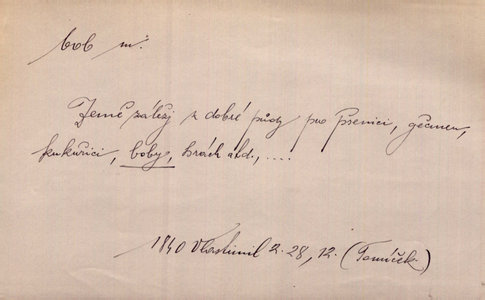 bob m.
Země záleží z dobré půdy pro Pšenici, gěčmen,
kukuřici, boby, hrách atd., ....
1840 Vlastimil 2. 28, 12. (Tomíček)